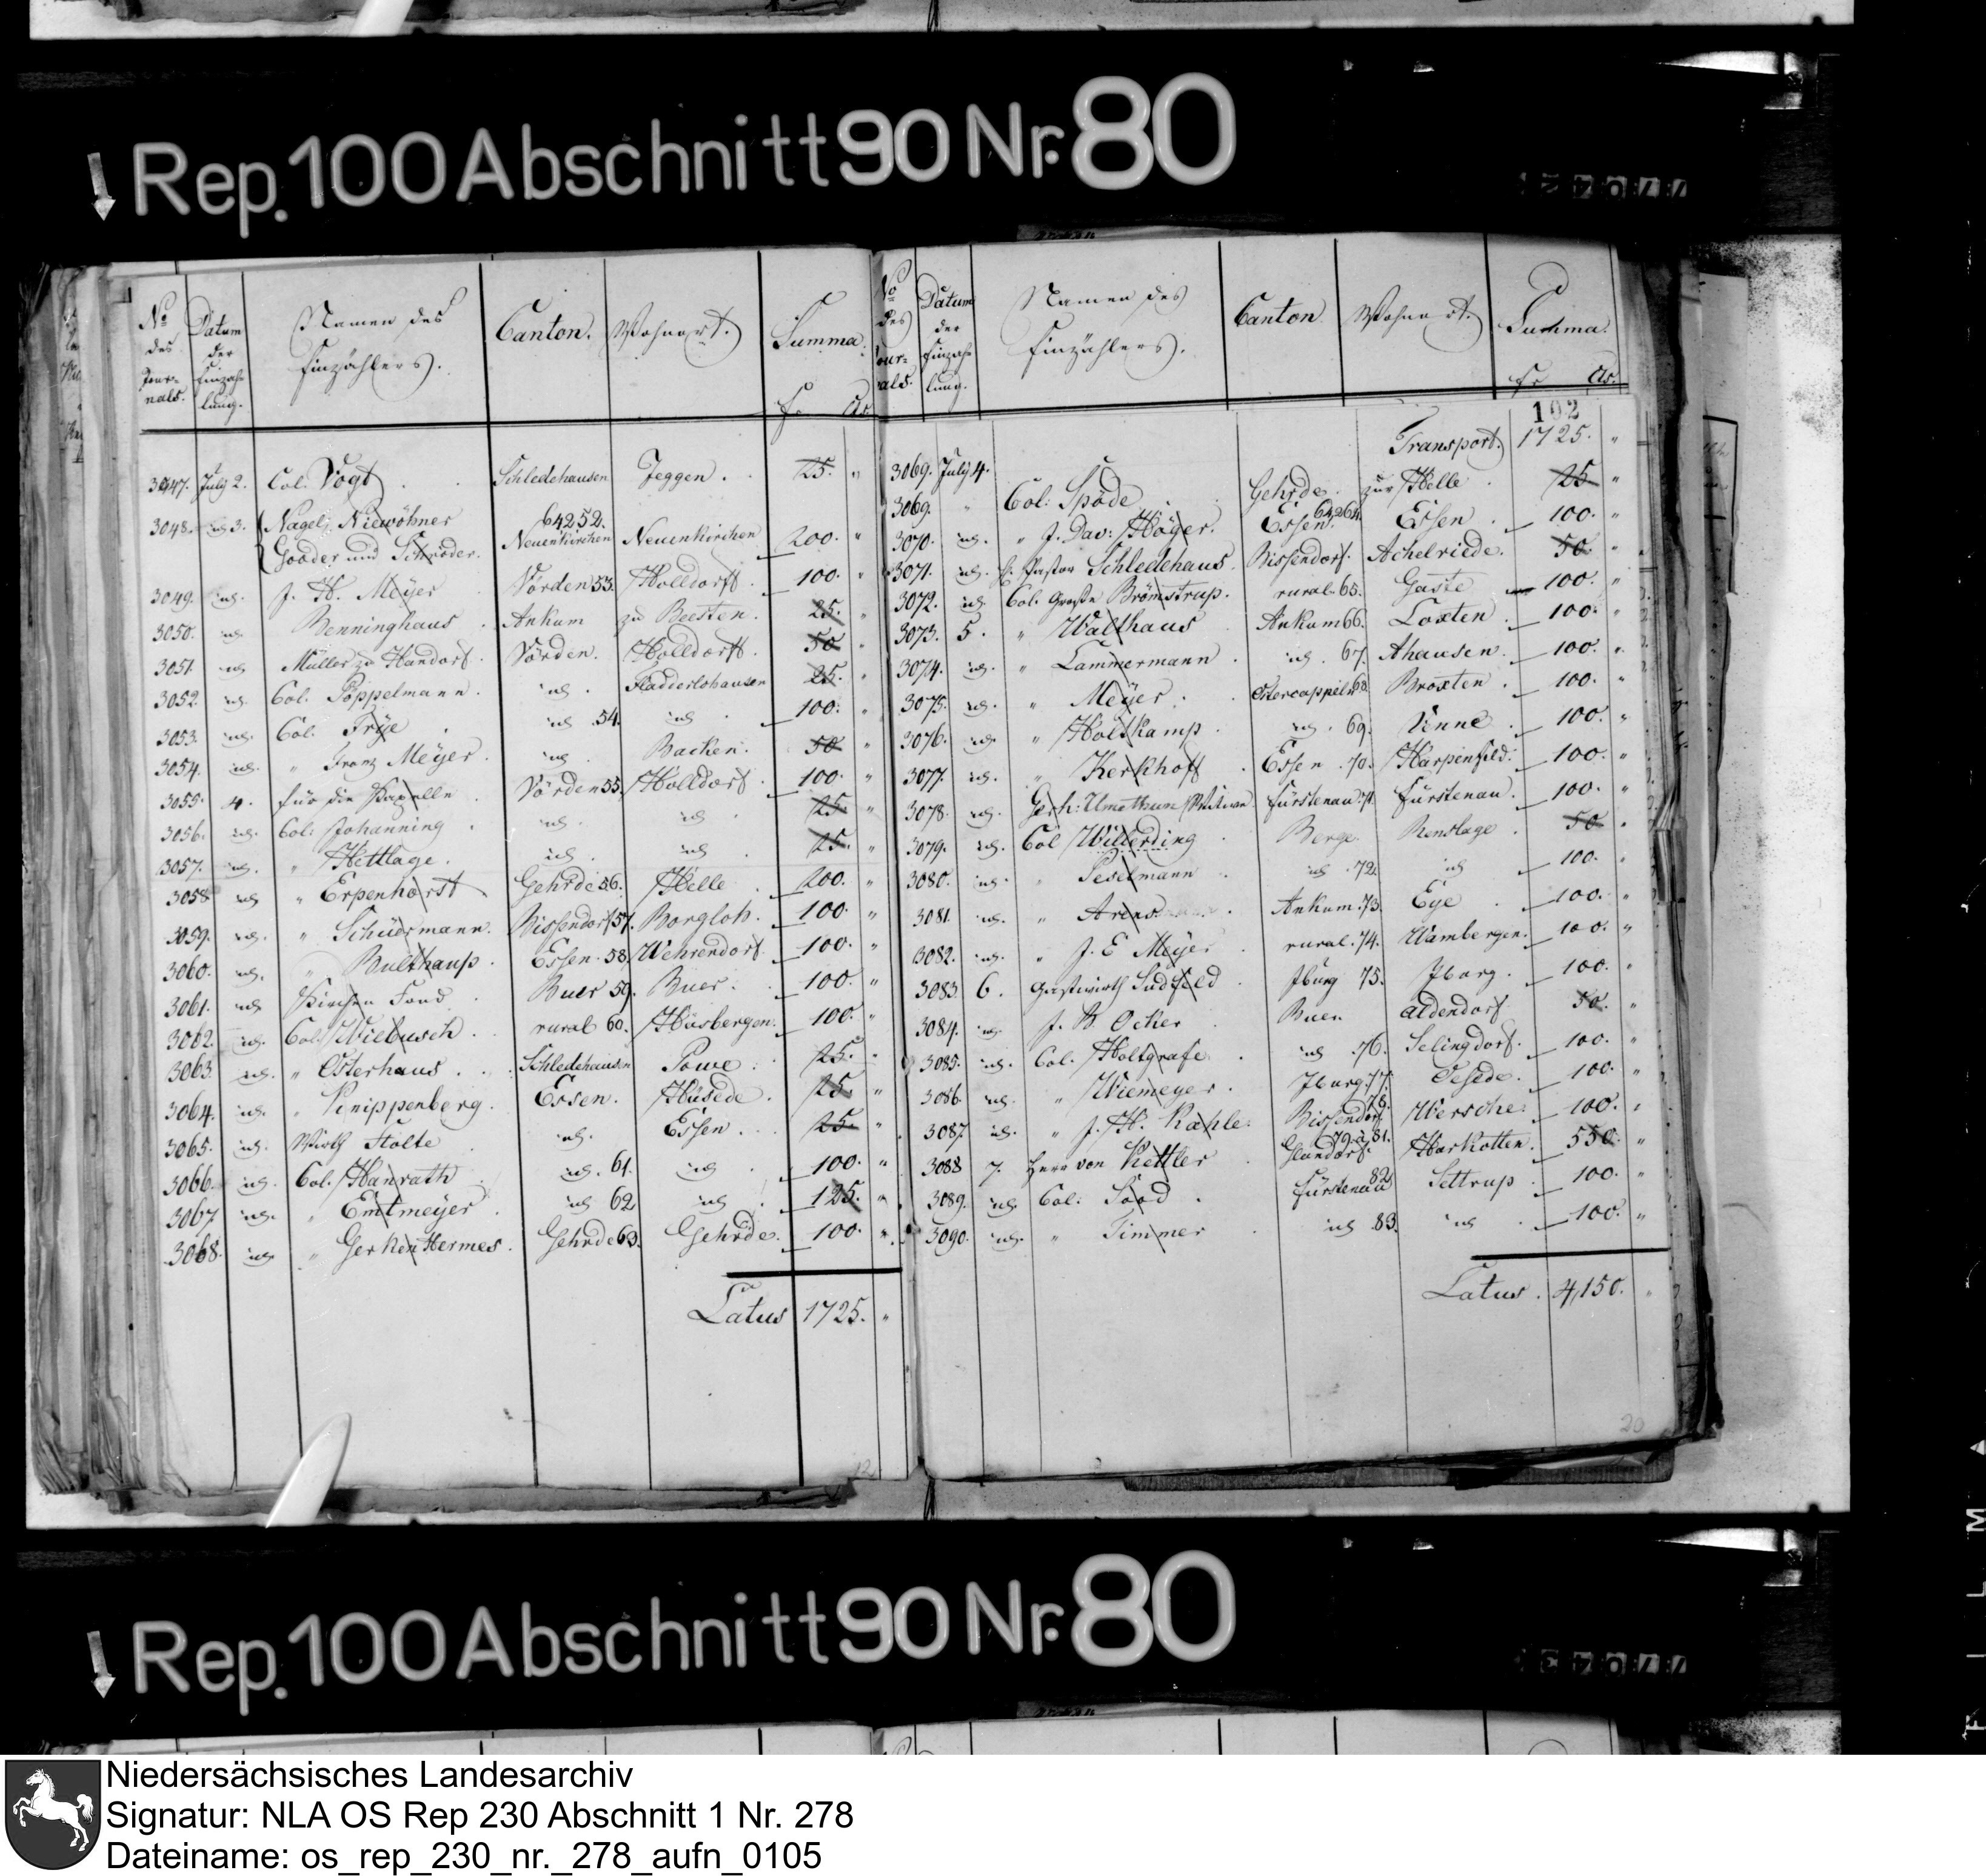 Rep. 100 Abschnitt 90 Nr. 80
No des Jour-nals. Datum der Einzah-lung. Namen des Einzählers. Canton. Wohnort. Summa. fr. Cts.
3047. July 2. Col. Vogt Schledehausen Jeggen. 25. "
3048. id 3. Nagel, Niewöhner 64252.
Goeder und Schröder. Neuenkirchen Neuenkirchen 200. "
3049. id. J. H. Meyer Vörden 53. Holldorff. 100. "
3050. id. Benninghaus Ankum zu Beesten. 25. "
3051 id Müller zu Handorf. Vörden. Holldorff. 50 "
3052 id. Col. Pöppelmann. id. Fladderlohausen 25. "
3053. id. Col. Frye id 54. id 100. "
3054. id. " Franz Meyer. id. Backen. 50 "
3055. 4. für die Kapelle Vörden 55. Holldorf. 100. "
3056. id. Col. Johanning id. id. 25 "
3057. id. " Hettlage. id id 25. "
3058 id " Erpenhorst Gehrde 56. Helle 200. "
3059. id. " Schüürmann. Bissendorf 57. Borgloh. 100. "
3060. id. " Bulthaup. Essen. 58. Wehrendorf 100. "
3061. id Kirchen Fond Buer 59. Buer. 100. "
3062. id. Col. Wiebusch. rural 60. Hüsbergen. 100. "
3063. id. " Osterhaus. Schledehausen Powe 25. "
3064. id. " Knippenberg. Essen. Hüsede. 25. "
3065. id. Wirth Stolte id. Essen. 25. "
3066. id. Col. Hanrath id. 61. id 100. "
3067. id. " Emtmeyer. id 62 id 125. "
3068. id. " Gerken Hermes. Gehrde 63. Gehrde. 100. "
Latus 1725. "
No des Jour-nals. Datum der Einzah-lung. Namen des Einzählers. Canton. Wohnort. Summa. fr. Cts.
102
3069. July 4. Transport. 1725. "
3069. " Col: Spöde Gehrde. zur Helle 25 "
3070. id. " J. Dav: Höger. Essen. 64264. Essen. 100. "
3071. id. H. Pastor Schledehaus. Bissendorf. Achelriede. 50. "
3072. id. Col. Große Brömstrup. rural. 65. Gaste 100. "
3073. 5. " Walthaus Ankum 66. Loxten. 100. "
3074. id. " Lammermann. id. 67. Ahausen. 100. "
3075. id. " Meyer. Ostercappeln 68 Broxten. 100. "
3076. id. " Holtkamp. id. 69. Venne. 100. "
3077. id. " Kerkhoff Essen. 70. Harpenfeld. 100. "
3078. id. Gerh: Wittwe. Fürstenau 71. Fürstenau. 100. "
3079. id. Col Willerding Berge Renslage 50. "
3080. id. " Peselmann id 72. id 100. "
3081. id. " Arens Ankum. 73. Eye 100. "
3082. id. " J. E Meyer rural. 74. Wambergen. 100. "
3083. 6. Gastwirth Sudfeld Jburg 75. Jburg. 100. "
3084. id. J. B. Ocker Buer. Oldendorf. 50. "
3085. id. Col. Holtgrafe id 76. Selingdorf. 100. "
3086. id. " Wiemeyer. Jburg. 77. Oesede. 100. "
3087. id. " J. H. Kahle. Bissendorf 78. Wersche. 100. "
3088 7. Herr von Kettler Glandorf. 79 à 81. Harkotten. 550. "
3089. id. Col: Sood. Fürstenau 82 Settrup. 100. "
3090. id. " Timmer id 83. id 100. "
Latus. 4,150. "
20
Rep. 100 Abschnitt 90 Nr. 80
Niedersächsisches Landesarchiv
Signatur: NLA OS Rep 230 Abschnitt 1 Nr. 278
Dateiname: os_rep_230_nr._278_aufn_0105